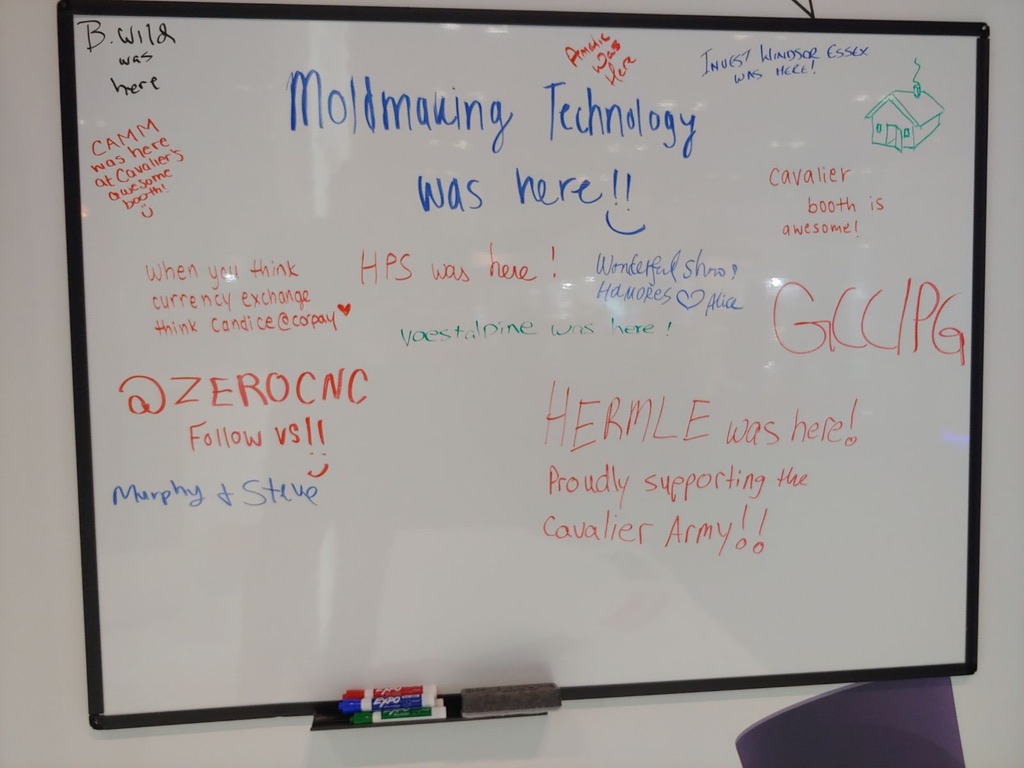 B. Wild
was
here
Amatic
was
Here
INVEST WINDSOR ESSEX
WAS HERE!
Moldmaking Technology
was here!!
CAMM
was here
at Cavalier's
awesome
booth!
Cavalier
booth is
awesome!
When you think
currency exchange
think Candice@corpay
HPS was here!
Wonderful Show!
HAMORES Alice
voestalpine was here!
GCCIPG
@ZEROCNC
Follow us!!
Murphy & Steve
HERMLE was here!
Proudly supporting the
Cavalier Army!!